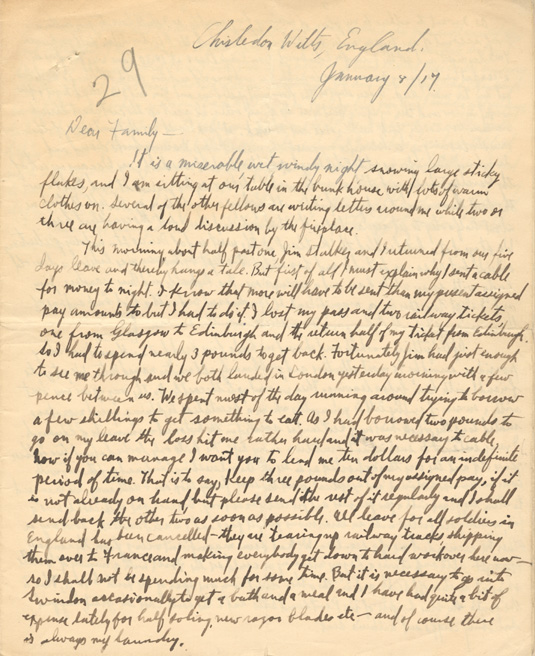 Chisledon Wilts, England.
January 8/17.
29
Dear Family—
It is a miserable wet windy night snowing large sticky
flakes, and I am sitting at our table in the bunk house with lots of warm
clothes on. Several of the other fellows are writing letters around me while two or
three are having a loud discussion by the fireplace.
This morning about half past one Jim Stalker and I returned from our five
days leave and thereby hangs a tale. But first of all I must explain why I sent a cable
for money to night. I know that more will have to be sent than my present assigned
pay amounts to but I had to do it. I lost my pass and two railway tickets,
one from Glasgow to Edinburgh and the return half of my ticket from Edinburgh.
So I had to spend nearly 3 pounds to get back. Fortunately Jim had just enough
to see me through and we both landed in London yesterday morning with a few
pence between us. We spent most of the day running around trying to borrow
a few shillings to get something to eat. As I had borrowed two pounds to
go on my leave the loss hit me rather hard and it was necessary to cable,
now if you can manage I want you to lend me ten dollars for an indefinite
period of time. That is to say, keep three pounds out of my assigned pay, if it
is not already on hand but please send the rest of it regularly and I shall
send back the other two as soon as possible. All leave for all soldiers in
England has been cancelled—they are tearing up railway tracks shipping
them over to France and making everybody get down to hard work over here now—
so I shall not be spending much for some time. But it is necessary to go into
Swindon occasionally to get a bath and a meal and I have had quite a bit of
expense lately for half soling, new razor blades etc— and of course there
is always my laundry.